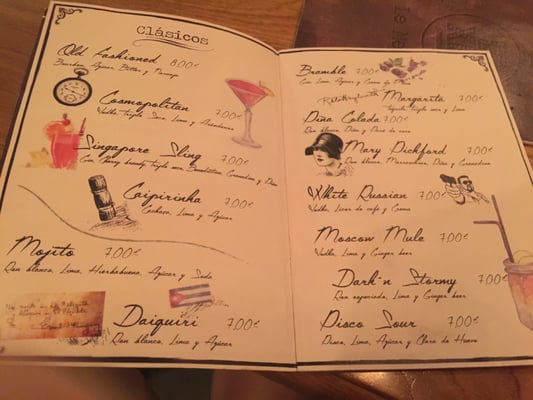 Clásicos
Old Fashioned 8.00€
Bourbon, Azúcar, Bitter y Naranja
Cosmopolitan 7.00€
Vodka, Triple Seco, Lima y Arándanos
Singapore Sling 7.00€
Gin, Cherry brandy, Triple seco, Benedictine, Granadina y Piña
Caipirinha 7.00€
Cachaza, Lima y Azúcar
Mojito 7.00€
Ron blanco, Lima, Hierbabuena, Azúcar y Soda
Daiquiri 7.00€
Ron blanco, Lima y Azúcar
Bramble 7.00€
Gin, Lima, Azúcar y Crema de Mora
Margarita 7.00€
Tequila, Triple seco y Lima
Piña Colada 7.00€
Ron blanco, Piña y Coco
Mary Pickford 7.00€
Ron blanco, Marrasquino, Piña y Granadina
White Russian 7.00€
Vodka, Licor de café y Crema
Moscow Mule 7.00€
Vodka, Lima y Ginger beer
Dark'n Stormy 7.00€
Ron especiado, Lima y Ginger beer
Pisco Sour 7.00€
Pisco, Lima, Azúcar y Clara de Huevo